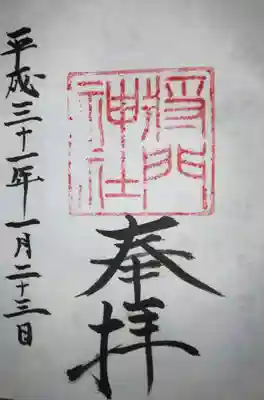 将門
神社
奉拝
平成三十一年一月二十三日